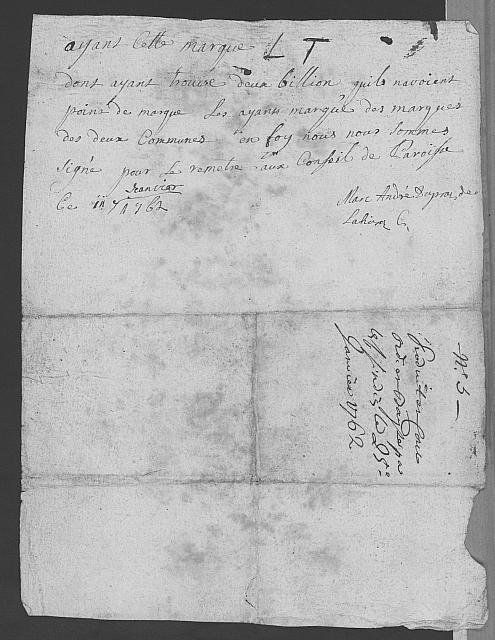 ayant Cette marque L T
dont ayant trouvé deux billion quils navoient
point de marque Les ayants marqué des marques
des deux Communes en foy nous nour sommes
signé pour Le remetre aux Conseil de Paroisse
Ce 11 Jeanvier 1762
Marc André Dupraz de
N.° 5
Produit en Cour
ord. et
le 25e
Janvier 1762